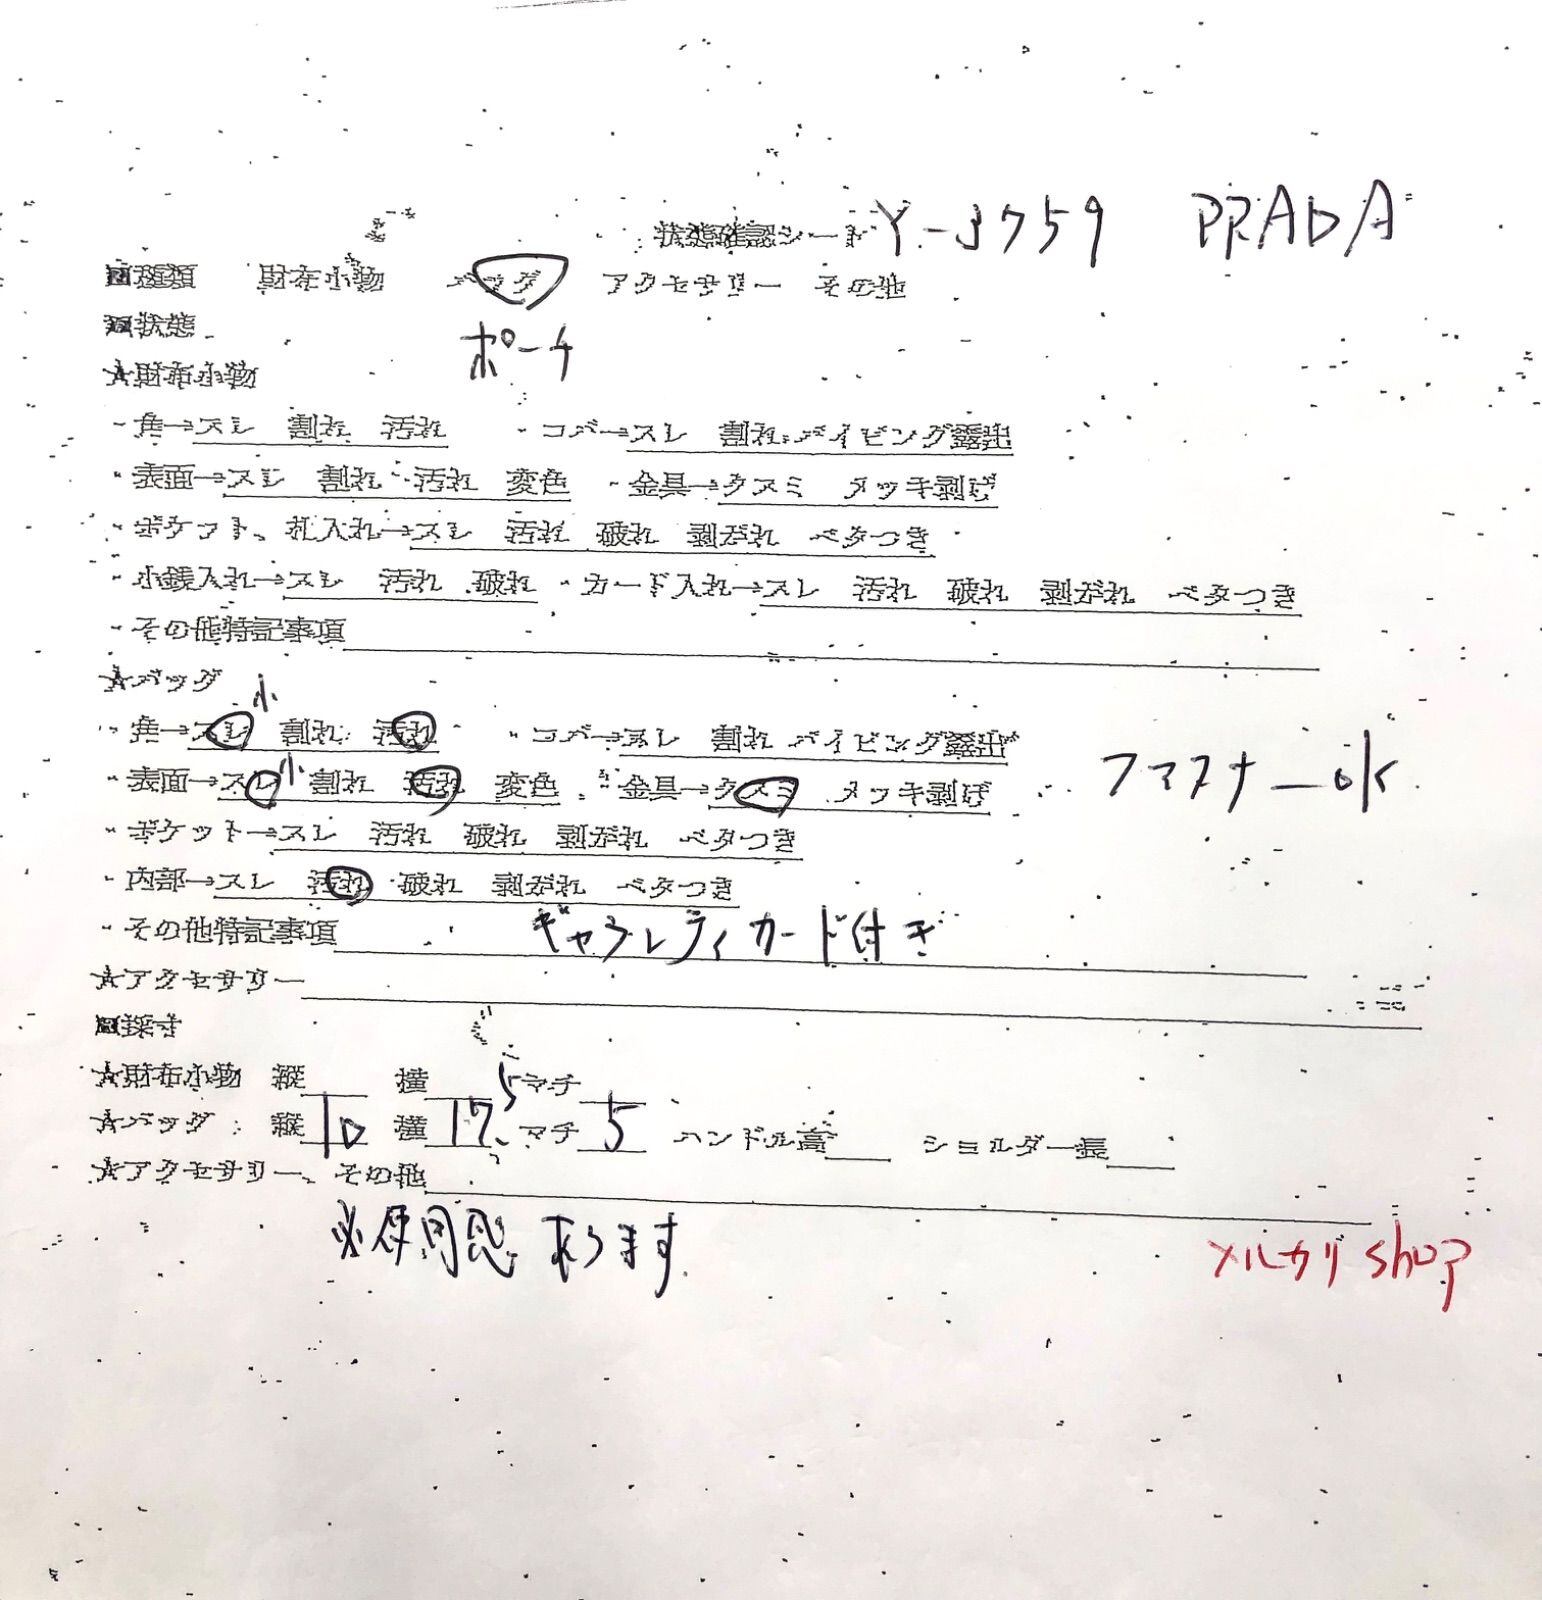 状態確認シート Y-3759 PRADA
■種類 財布小物 バッグ アクセサリー その他
■状態 ポーチ
★財布小物
・角→スレ 割れ 汚れ ・コバ→スレ 割れ パイピング露出
・表面→スレ 割れ 汚れ 変色 ・金具→クスミ メッキ剥げ
・ポケット、札入れ→スレ 汚れ 破れ 剥がれ ベタつき
・小銭入れ→スレ 汚れ 破れ ・カード入れ→スレ 汚れ 破れ 剥がれ ベタつき
・その他特記事項
★バッグ
・角→スレ 小 割れ 汚れ ・コバ→スレ 割れ パイピング露出
・表面→スレ 小 割れ 汚れ 変色 ・金具→クスミ メッキ剥げ ファスナーok
・ポケット→スレ 汚れ 破れ 剥がれ ベタつき
・内部→スレ 汚れ 破れ 剥がれ ベタつき
・その他特記事項 ギャランティカード付き
★アクセサリー
■採寸
★財布小物 縦 横 マチ
★バッグ 縦 10 横 17.5 マチ 5 ハンドル高 ショルダー長
★アクセサリー、その他
※使用感あります
メルカリshop